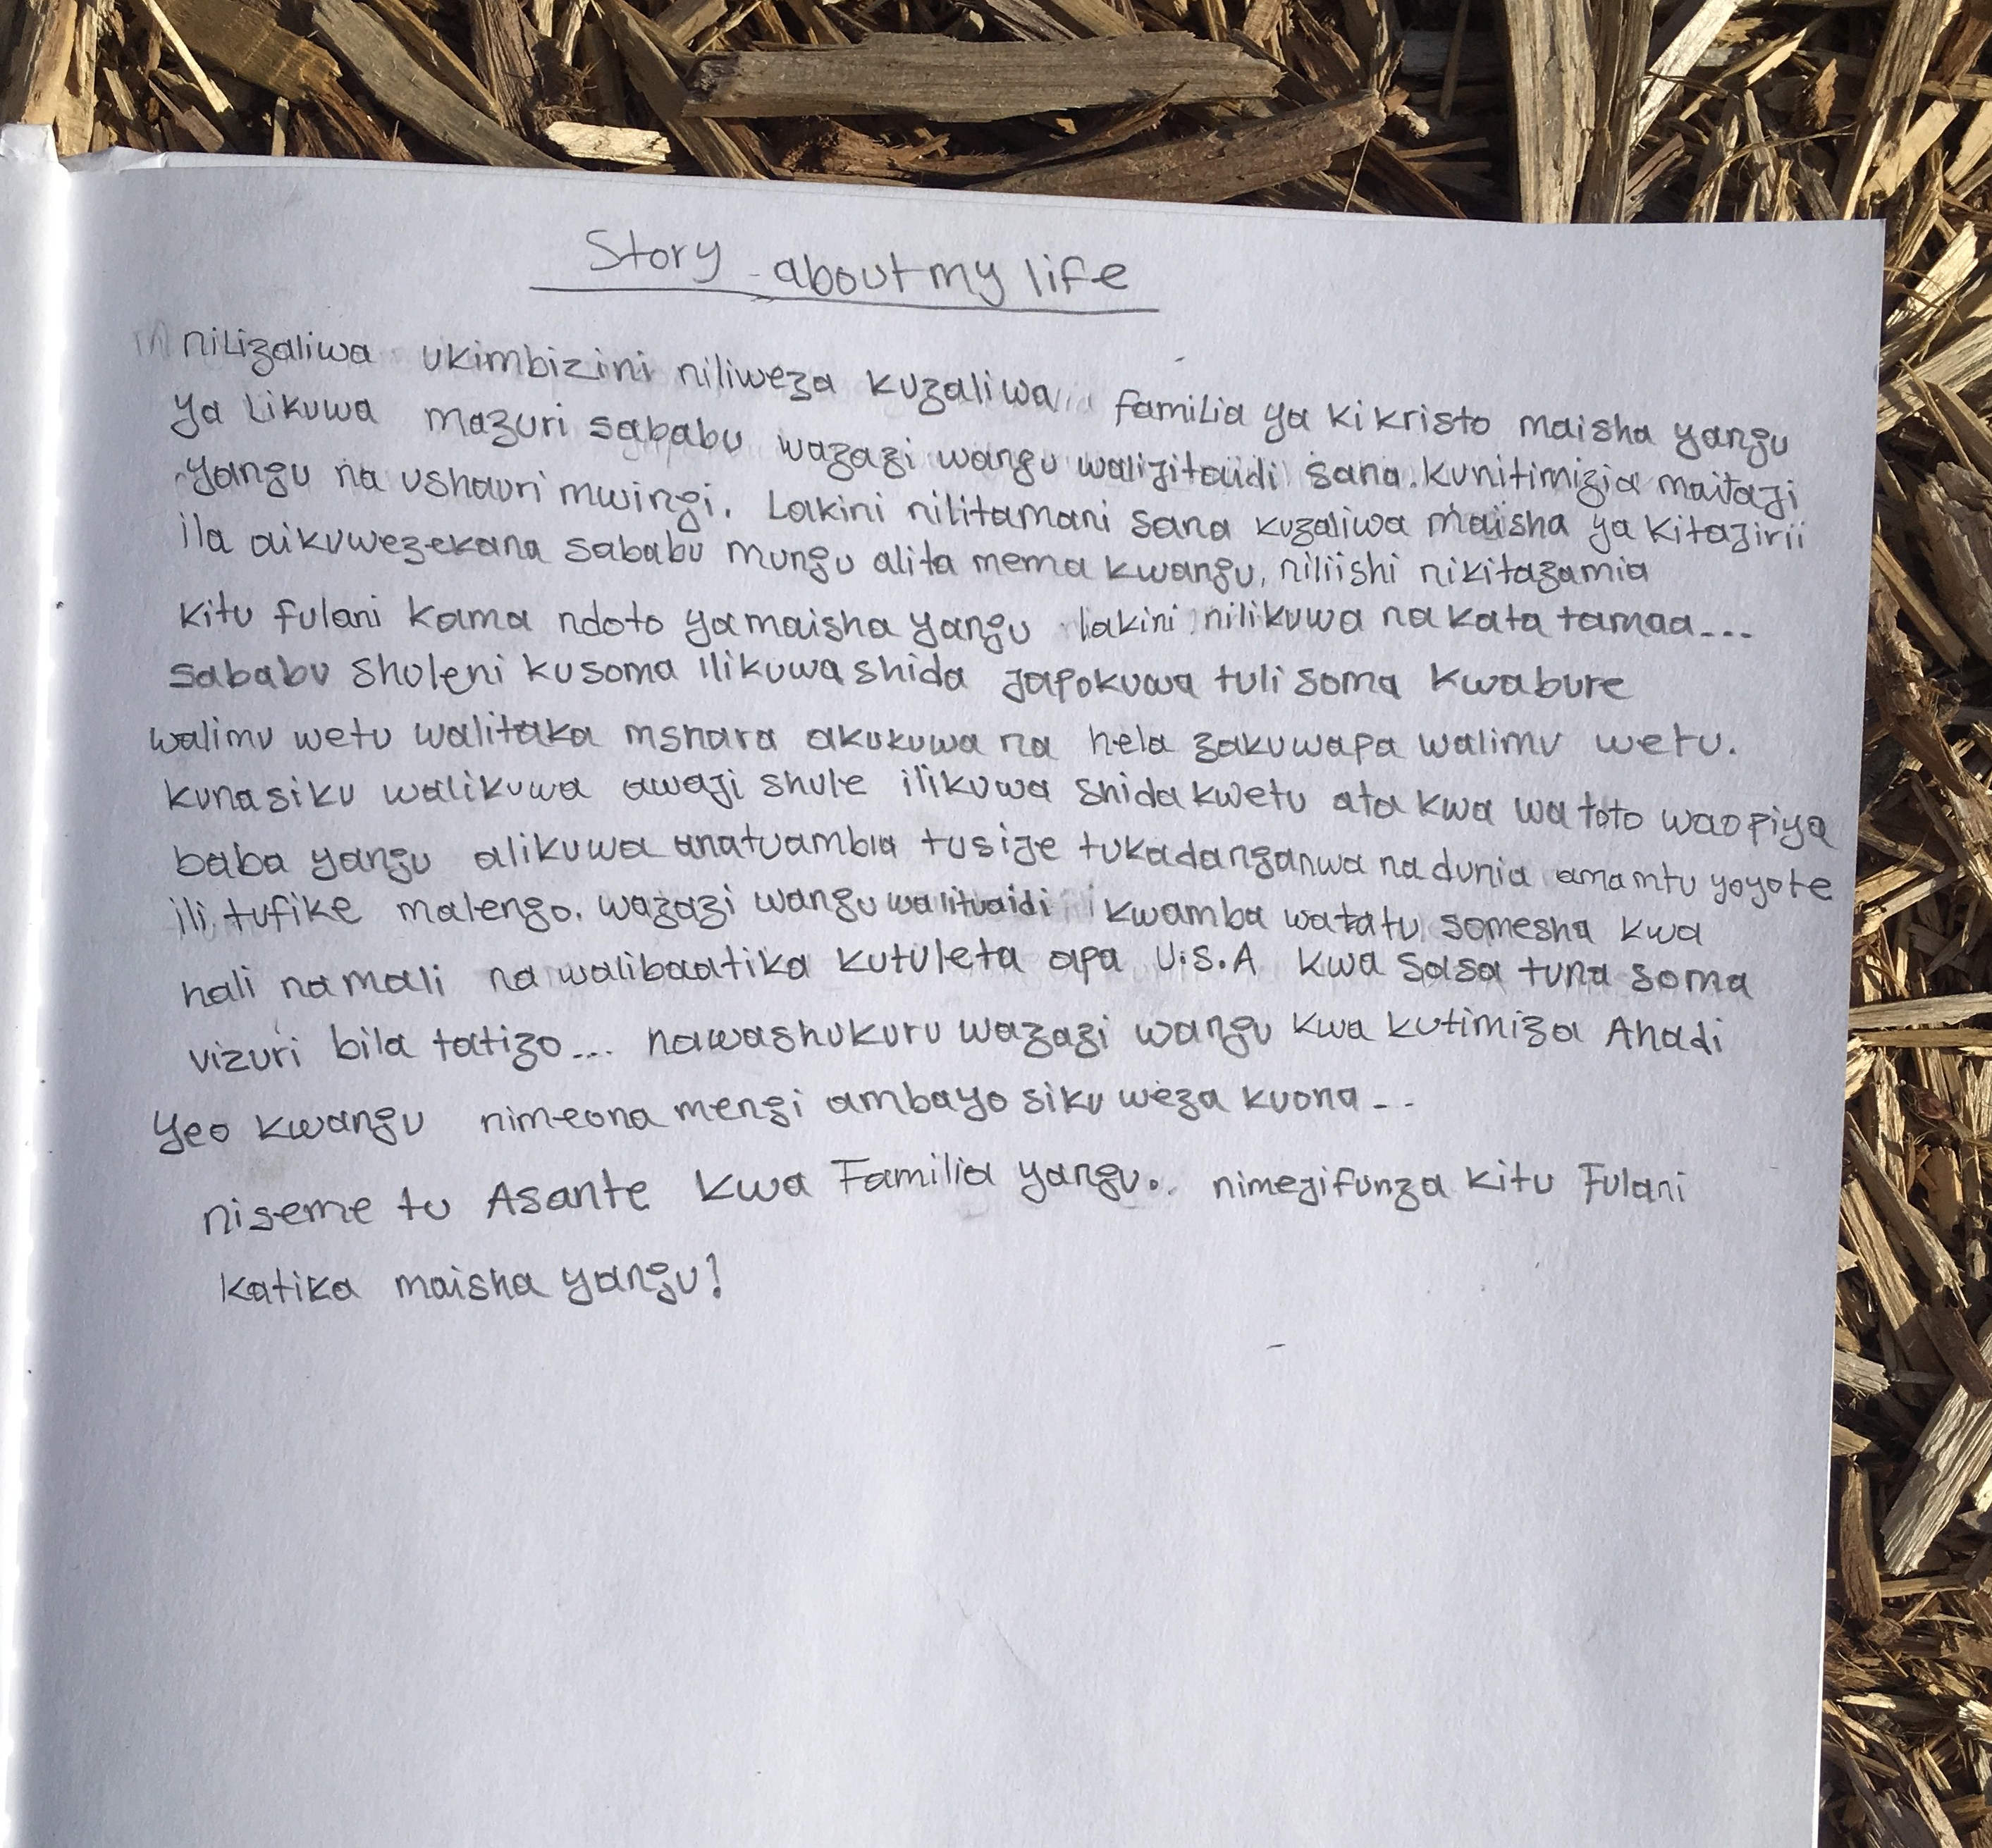 Story about my life
nilizaliwa ukimbizini niliweza kuzaliwa familia ya kikristo maisha yangu
ya likuwa mazuri sababu wazazi wangu walijitaidi sana kunitimizia maitaji
yangu na ushauri mwingi. Lakini nilitamani sana kuzaliwa maisha ya kitajirii
ila aikuwezekana sababu mungu alita mema kwangu, niliishi nikitazamia
kitu fulani kama ndoto yamaisha yangu lakini nilikuwa na kata tamaa...
sababu shuleni kusoma ilikuwa shida japokuwa tuli soma kwabure
walimu wetu walitaka mshara akukuwa na hela zakuwapa walimu wetu.
kunasiku walikuwa awaji shule ilikuwa shida kwetu ata kwa wa toto wao piya
baba yangu alikuwa anatuambia tusije tukadanganwa na dunia ama mtu yoyote
ili tufike malengo. wazazi wangu walituaidi kwamba watatu somesha kwa
hali na mali na walibaatika kutuleta apa U.S.A kwa sasa tuna soma
vizuri bila tatizo... nawashukuru wazazi wangu kwa kutimiza Ahadi
yeo kwangu nimeona mengi ambayo siku weza kuona...
niseme tu Asante kwa Familia yangu.. nimejifunza kitu Fulani
katika maisha yangu!